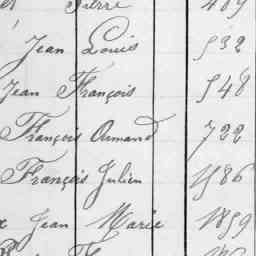 Pierre 489
Jean Louis 532
Jean François 548
François Armand 722
François Julien 1586
Jean Marie 1859